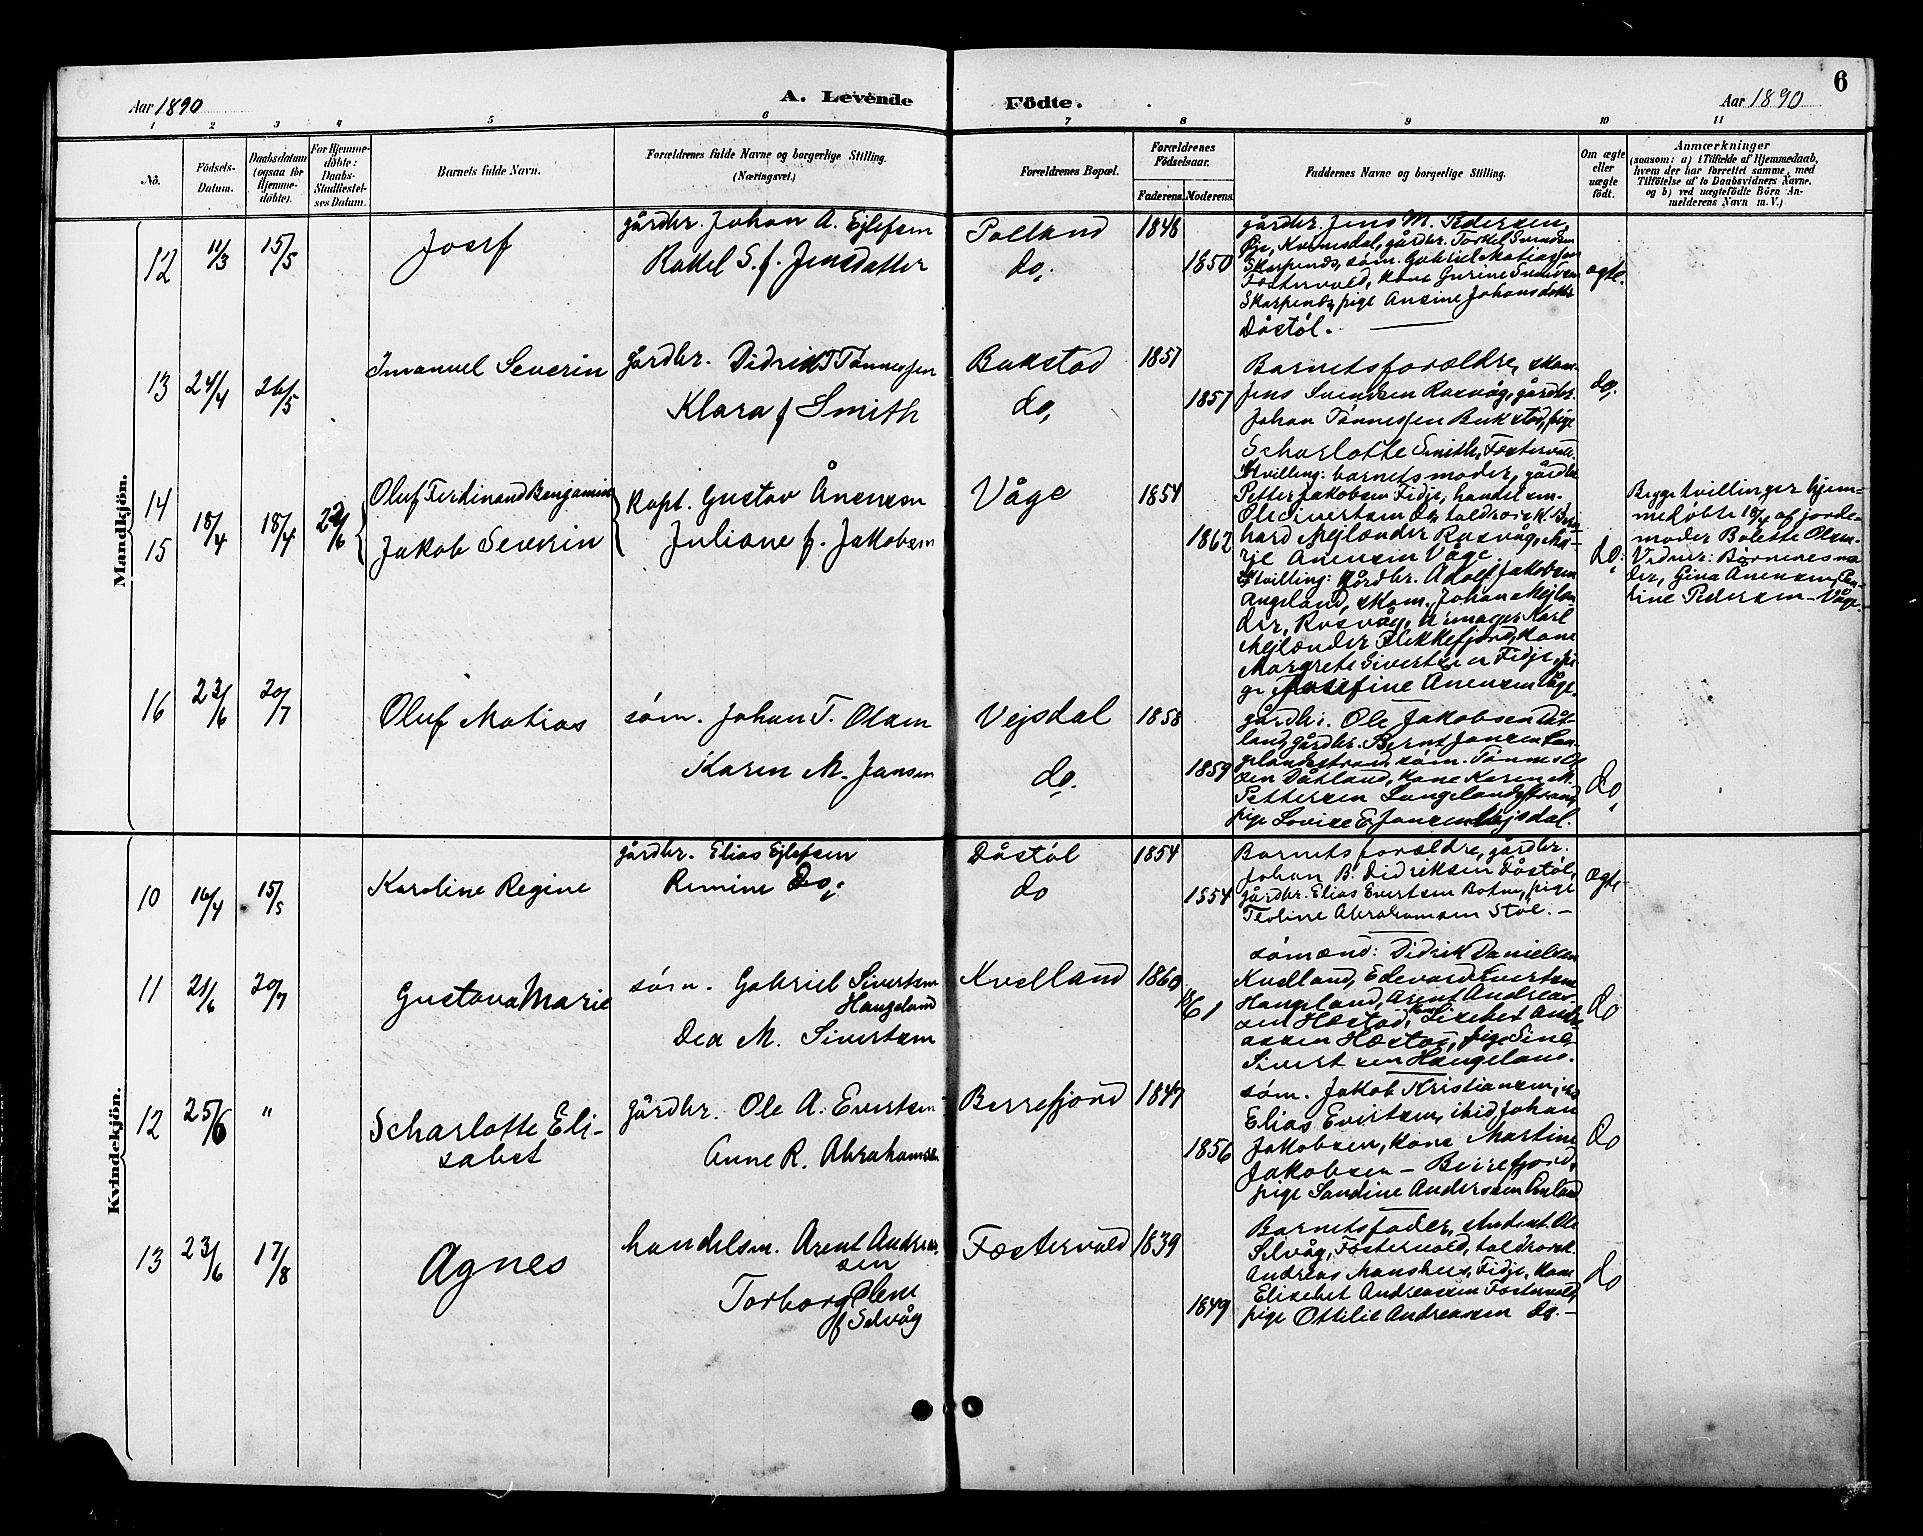 6
Aar 1890
A. Levende
Födte.
Aar 1890
1 2 3 4 5 6 7 8 9 10 11
No.
Födsels-
Datum.
Daabsdatum
(ogsaa for
Hjemme-
döbte).
For Hjemme-
döbte:
Daabs-
Stadfæstel-
ses Datum.
Barnets fulde Navn.
Forældrenes fulde Navne og borgerlige Stilling.
(Næringsvei.)
Forældrenes Bopæl.
Forældrenes
Födselsaar.
Faderens. Moderens.
Faddernes Navne og borgerlige Stilling.
Om ægte
eller
uægte
födt.
Anmærkninger
(saasom: a) i Tilfælde af Hjemmedaab,
hvem der har forrettet samme, med
Tilföielse af to Daabsvidners Navne,
og b) ved uægtefödte Börn An-
melderens Navn m. V.)
Mandkjön.
12 11/3 15/5
Josef
gårdbr. Johan A. Ejlefsen
Rakel S. f. Jensdatter
do.
1848
1850
gårdbr. Jens M. Pedersen,
Øie, Kvinesdal, gårdbr. Torkel Svendsen
Skarpenes, søm. Gabriel Matiassen
Fostervold, kone Gurine Svendsen
Skarpenes, pige Ansine Johansdatter
Dåstøl.
ægte.
13 24/4 26/5
Imanuel Severin
gårdbr. Didrik T Tønnessen
Klara f Smith
Bukstad
do,
1857
1857
Barnets forældre, skom.
Jens Svendsen Rasvåg, gårdbr.
Johan Tønnessen Bukstad, pige
Scharlotte Smith, Fostervold.
do.
14
15
18/4 18/4 22/6
Oluf Ferdinand Benjamin
Jakob Severin
kapt. Gustav Ånensen
Juliane f. Jakobsen
Våge
1854
1862
tvilling: barnets moder, gårdbr
Petter Jakobsen Fidje, handelsm.
Ole Sivertsen do, toldrorsk. Bern-
hard Mejlænder Rasvåg, Ma-
Anensen Våge
tvilling: gårdbr. Adolf Jakobsen
Angeland, skom. Johan Mejlæn-
der, Rasvåg, urmager Karl
Mejlænder Flekkefjord, kone
Margrete Sivertsen Fidje, pi-
ge Josefine Anensen Våge.
do.
Begge tvillinger hjem-
medøbte 18/4 af jorde-
moder Bolette Olsen.
Vidner: Børnenes mo-
der, Gina Ånensen,
Pedersen - Våge.
16 23/6 20/7
Oluf Matias
søm. Johan T. Olsen
Karen M. Jansen
Vejsdal
do.
1858
1859
gårdbr. Ole Jakobsen Dåt-
land, gårdbr. Bernt Jansen Lan-
gelandsstrand, søm. Tønnes Ol
sen Dåtland, kone Karen M.
Pettersen Langelandsstrand,
pige Lovise E. Jansen Vejsdal.
do
Kvindekjön.
10 16/4 15/5
Karoline Regine
gårdbr. Elias Ejlefsen
Remine do.
Dåstøl
do
1854
1854
Barnets forældre, gårdbr.
Johan B. Didriksen Dåstøl,
gårdbr. Elias Evertsen Botne, pige
Teoline Abrahamsen Støle. -
ægte
11 21/6 20/7
Gustava Marie
søm. Gabriel Sivertsen
Haugeland
Dea M. Sivertsen
Kvelland
1860
1861
sømænd: Didrik Danielsen
Kvelland, Edevard Evertsen
Haugeland, Arent Andreas-
sen Hæstad, Lisebet Andre
assen Hæstad, pige Sine
Sivertsen Haugeland.
do
12 25/6 "
Scharlotte Eli-
sabet
gårdbr. Ole A. Evertsen
Anne R. Abrahamsen
Berrefjord
1847
1856
søm. Jakob Kristiansen,
Elias Evertsen, ibid Johan
Jakobsen, kone Martine
Jakobsen - Berrefjord,
pige Sandine Andersen
do
13 23/6 17/8
Agnes
handelsm. Arent Andreas
sen
Torborg Olene
f Selvåg
Fostervold
1839
1849
Barnets fader, student. Ole
Selvåg, Fostervold, toldrorsk.
Andreas Monshus, Fidje, kone
Elisebet Andreassen Fostervold,
pige Ottilie Andreassen do. -
do